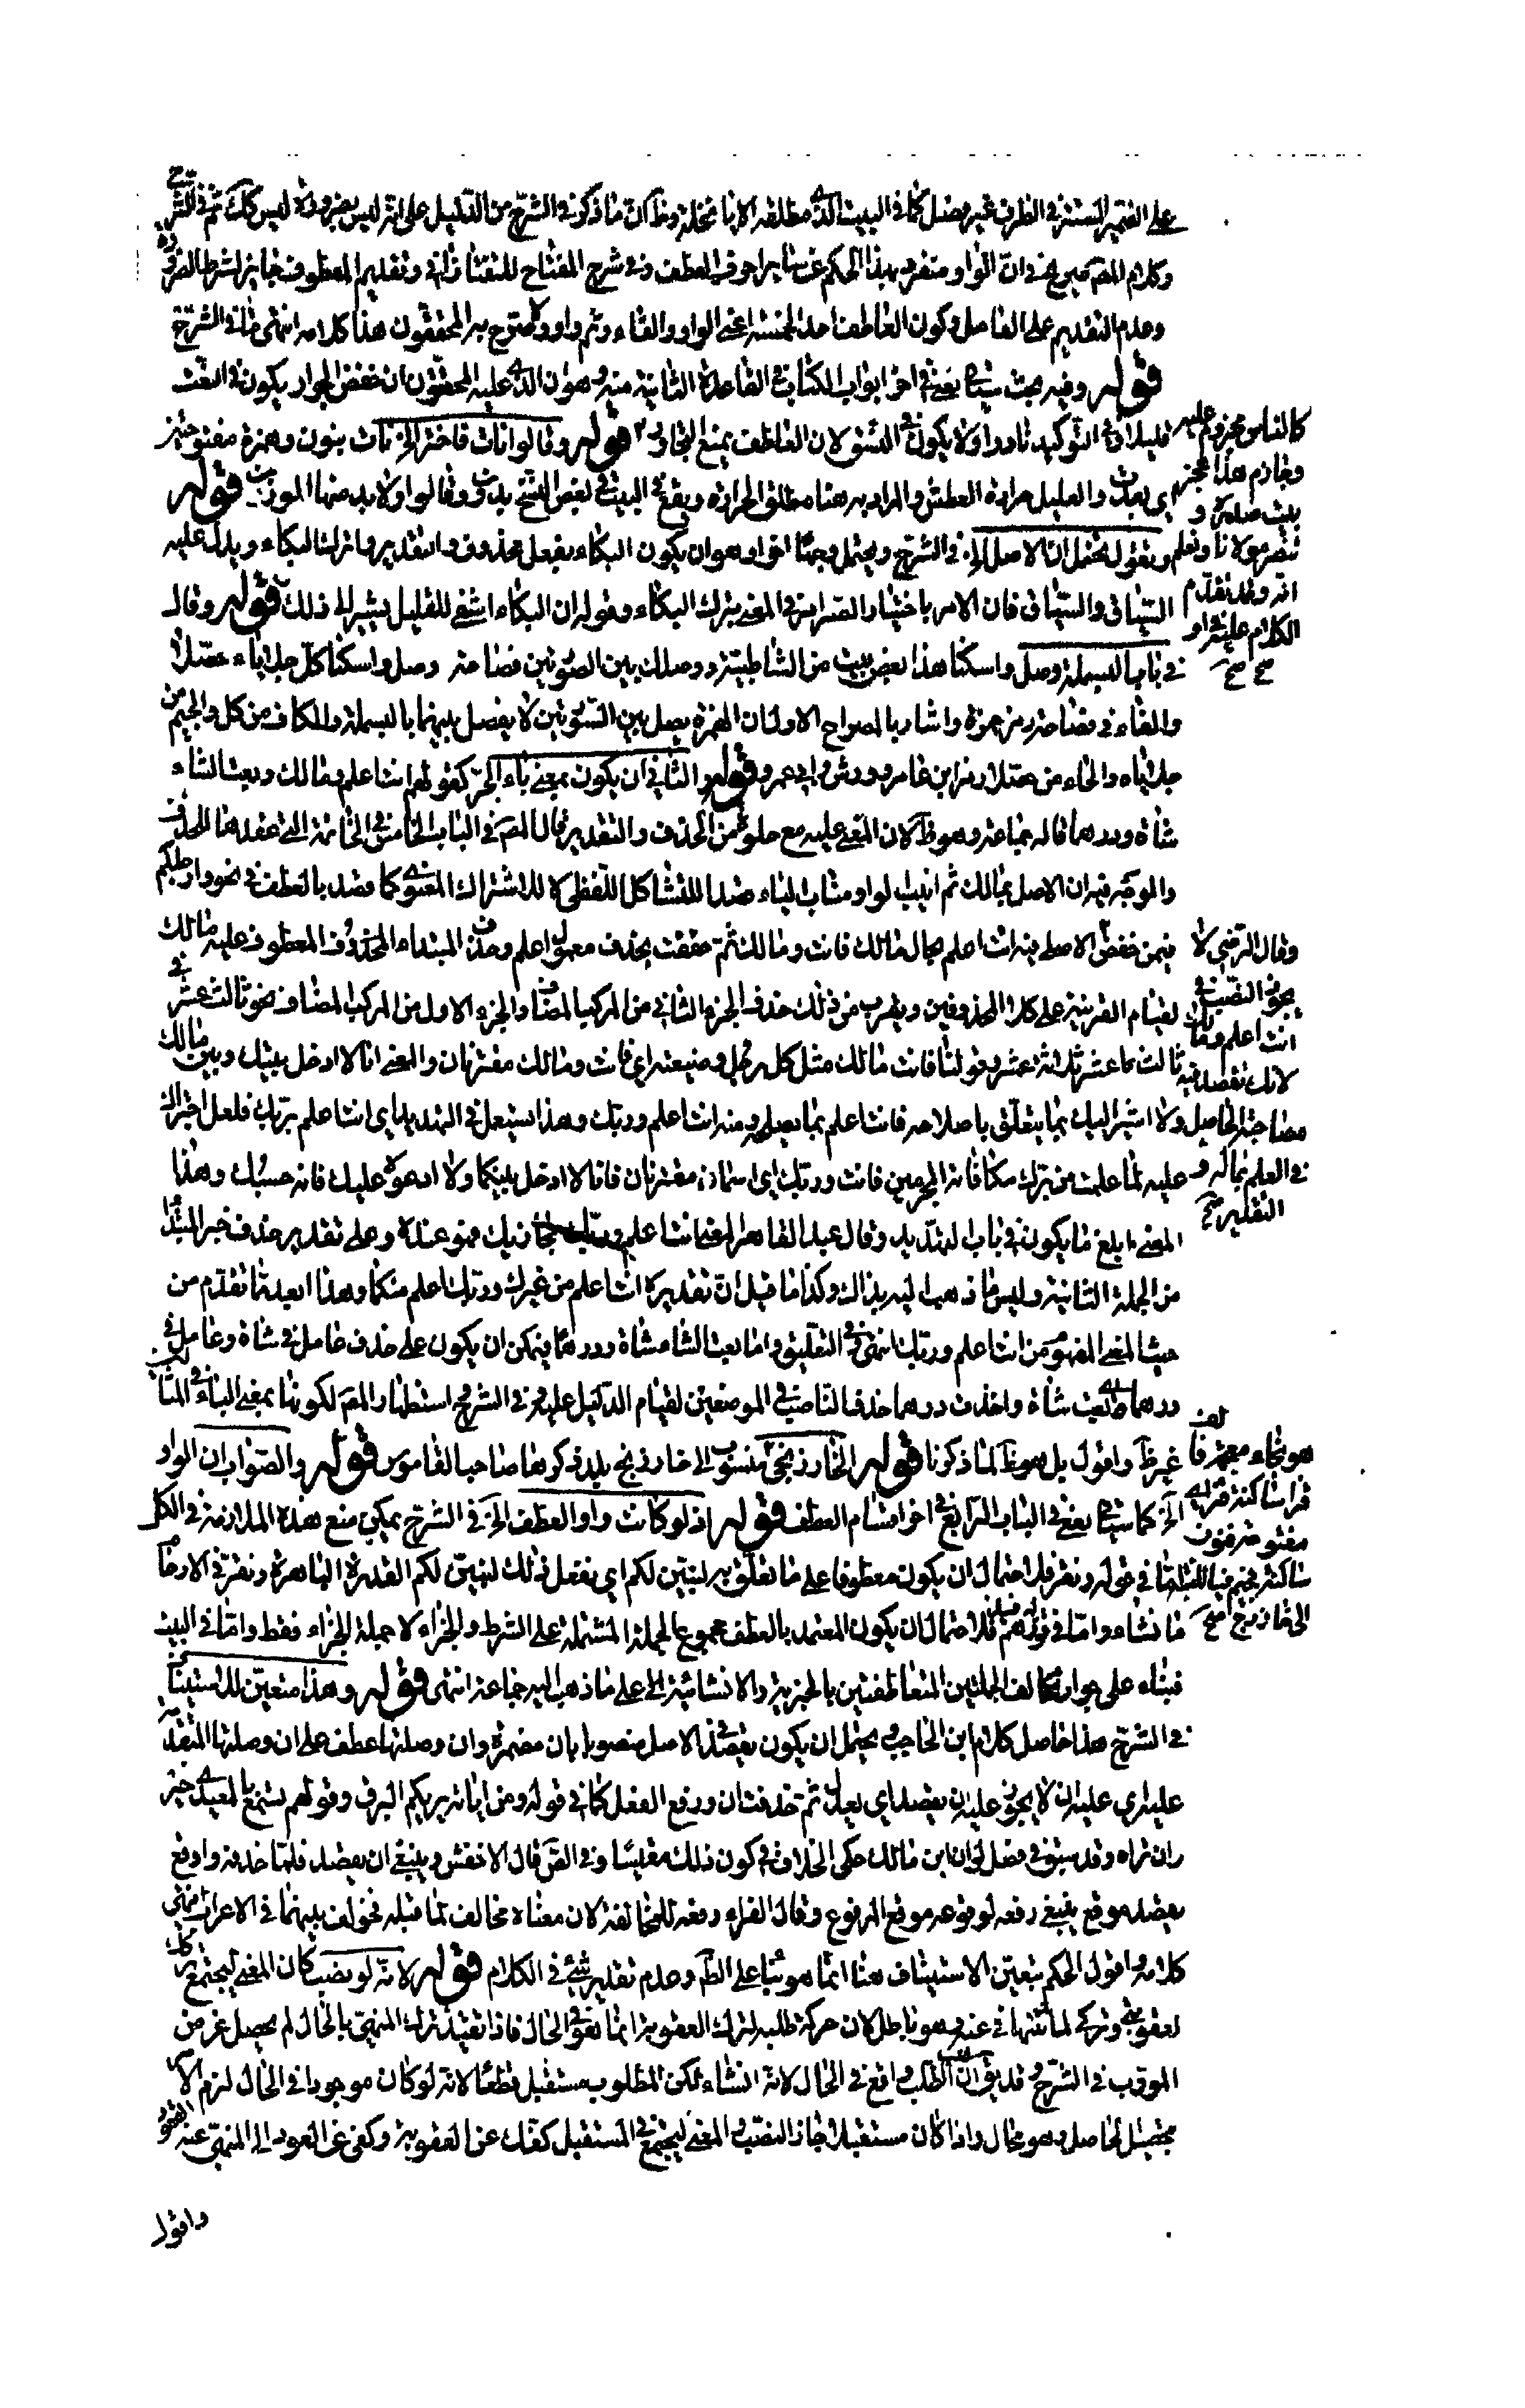 على الضمير المستتر في الظرف من غير فصل كما في البيت الذي مطلعه الا يا نخلة وظ ان ما ذكره في الشرح من الدليل على انه ليس بضرورة ليس كك ثم في الشرح
وكلام المص صريح في ان الواو منفرد بهذا الحكم عن ساير حروف العطف وفي شرح المفتاح للتفتازاني وتقديم المعطوف جايز بشرط الضرورة
وعدم التقديم على العامل وكون العاطف احد الخمسة اعني الواو والفاء وثم واو ولا صرح به المحققون هذا كلامه انتهى ما في الشرح
قوله وفيه بحث سياتي يعني في اخر ابواب الكتاب في القاعدة الثانية منه وهو ان الذي عليه المحققون ان خفض الجوار يكون في النعت
قليلا وفي التوكيد نادرا ولا يكون في النسق لان العاطف يمنع التجاور قوله وقالوا نأت فاختر الخ نأت بنون وهمزة مفتوحتين
اي بعدت والغليل حرارة العطش والمراد به هنا مطلق الحرارة ويقع في البيت في بعض النسخ بدل وقالوا ولا بد منها الموزن قوله
ونقول يحتمل ان الاصل الخ في الشرح ويحتمل وجها اخر وهو ان يكون البكاء بفعل محذوف والتقدير واترك البكاء ويدل عليه
السياق والسباق فان الامر باختيار الصبر امر في المعنى بترك البكاء وقوله ان البكاء اشفى للغليل يشير الى ذلك قوله وقال
في باب البسملة وصل واسكتا هذا بعض بيت من الشاطبية ووصلك بين السورتين فصاحة وصل واسكتا كل جلاياه حصلا
والفاء في فصاحة رمز حمزة واشار بالمصراع الاول ان حمزة يصل بين السورتين لا يفصل بينهما بالبسملة والكاف من كل والجيم من
جلاياه والحاء من حصلا رمز ابن عامر وورش وابي عمرو قوله والثاني ان يكون بمعنى باء الجر كقولهم انت اعلم ومالك وبعت الشاء
شاة ودرهما قاله جماعة وهو ظ لان المعنى عليه مع خلوه من الحذف والتقدير قال المص في الباب الخامس في الخاتمة التي عقدها للحذف
والموجه فيه ان الاصل بمالك ثم انيب الواو مناب الباء قصدا للتشاكل اللفظي لا للاشتراك المعنوي كما قصد بالعطف في نحو وارجلكم
فيمن خفض الاصل فيه انت اعلم بحال مالك فانت ومالك ثم خففت بحذف معمول اعلم وحذف المبتداء المحذوف المعطوف عليه مالك
لقيام القرينة على كلا المحذوفين ويقرب من ذلك حذف الجزء الثاني من المركب المضاف والجزء الاول من المركب المضاف نحو ثالث عشر في
ثالث عشر ثلاثة عشر وقولنا فانت مالك مثل كل رجل وضيعته اي فانت ومالك مقترنان والمعنى انا لا ادخل بينك وبين مالك
ولا اشير اليك بما يتعلق باصلاحه فانت اعلم بما يصلحه ومنه انت اعلم وربك وهذا يستعمل في التهديد اي انت اعلم بربك فلعل اجتراك
عليه لما علمت من تركه مكافاة المجرمين فانت وربك اي اسماذ مقترنان فانا لا ادخل بينكما ولا ادعوه عليك فانه حسبك وهذا
المعنى ابلغ ما يكون في باب التهديد وقال عبد القاهر المعنى انت اعلم وربك مجازيك فهو عنده وعلى تقدير حذف خبر المبتدا
من الجملة الثانية وليس ما ذهب اليه بذاك وكذا ما قيل ان تقديره انت اعلم من غيرك وربك اعلم منكما وهذا ابعد مما تقدم من
حيث المعنى المفهوم من انت اعلم وربك انتهى وفي التعليق واما بعت الشاء شاة ودرهما فيمكن ان يكون على حذف عامل في شاة وعامل في
درهما اي بعت شاة واخذت درهما حذف الناصب في الموضعين لقيام الدليل عليه وفي الشرح استظهار المص لكونها بمعنى الباء في المثالين
غير ظ واقول بل هو ظ لما ذكرنا قوله الخارزنجي منسوب الى خارزنج بلد ذكرها صاحب القاموس قوله والصواب ان الواو
الخ كما سياتي يعني في الباب الرابع في اخر اقسام العطف قوله اذ لو كانت واو العطف الخ في الشرح يمكن منع هذه الملازمة في الكل
اما في قوله ونقر فلاحتمال ان يكون معطوفا على ما تعلق به لنبين لكم اي نفعل ذلك لنبين لكم القدرة الباهرة ونقر في الارحام
ما نشاء واما في قوله ونذرهم فلاحتمال ان يكون المعتمد بالعطف مجموع الجملة المشتملة على الشرط والجزاء لا جملة الجزاء فقط واما في البيت
فبناء على جواز تخالف الجملتين المتعاطفتين بالخبرية والانشائية الخ على ما ذهب اليه جماعة انتهى قوله وهذا متعين للاستيناف
في الشرح هذا حاصل كلام ابن الحاجب ويحتمل ان يكون يقصد في الاصل منصوبا بان مضمرة وان وصلتها عطف على ان وصلتها المتقدمة
عليه اي عليه ان لا يجور وعليه ان يقصد اي يعدل ثم حذفت ان ورفع الفعل كما في قوله ومن اياته يريكم البرق وقولهم تسمع بالمعيدي خير
من ان تراه وقد سبق في فصل ان ان ابن مالك حكى الخلاف في كون ذلك مقيسا وفي الص قال الاخفش وينبغي ان يقصد فلما حذفه واوقع
يقصد موقع ينبغي رفعه لوقوعه موقع المرفوع وقال الفراء رفعه للمخالفة لان معناه مخالف لما قبله فخولف بينهما في الاعراب انتهى
كلامه واقول الحكم بتعين الاستيناف هنا انما هو بناء على الظ وعدم تقدير شيء في الكلام قوله لانه لو نصب كان المعنى ليجتمع تركك
لعقوبتي وتركي لما تنهاني عنه وهو باطل لان حركة طلبه لترك العقوبة انما هو في الحال فاذا تقيد ترك المنهي بالحال لم يحصل غرض
المؤدب في الشرح قد يقال ان الطلب واقع في الحال لانه انشاء لكن المطلوب مستقبل قطعا لانه لو كان موجودا في الحال لزم الامر
بتحصيل الحاصل وهو محال واذا كان مستقبلا جاز النصب والمعنى ليجتمع في المستقبل كفك عن العقوبة وكفي عن العود الى المنهي عنه انتهى
كالناس مجروم عليه
وجارم هذا عجز
بيت صدره و
ننصر مولانا ونعلم
انه وقد تقدم
الكلام عليه او
صح صح
وقال الرضي لا
يجوز النصب في
انت اعلم ومالك
لانك تقصد فيه
مصاحبة الحاصل
في العلم بماله و
التقدير صح
هو بخاء معجمة فالف
فراء ساكنة فزاي
مفتوحة فنون
ساكنة فجيم فياء النسبة
الى خارزنج صح
واقول